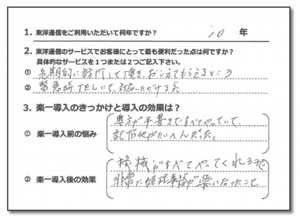 1. 東洋通信をご利用いただいて何年ですか？ 10 年
2. 東洋通信のサービスでお客様にとって最も便利だった点は何ですか？
具体的なサービスを1つまたは2つご記入下さい。
① 定期的に訪問して頂き、おしえてもらえるところ
② 緊急時TELして、対応いただける
3. 楽一導入のきっかけと導入の効果は？
① 楽一導入前の悩み
すべてやっていて、
記帳がたいへんだった。
② 楽一導入後の効果
機械がすべてやってくれるので
非常に経理事務が楽になったこと